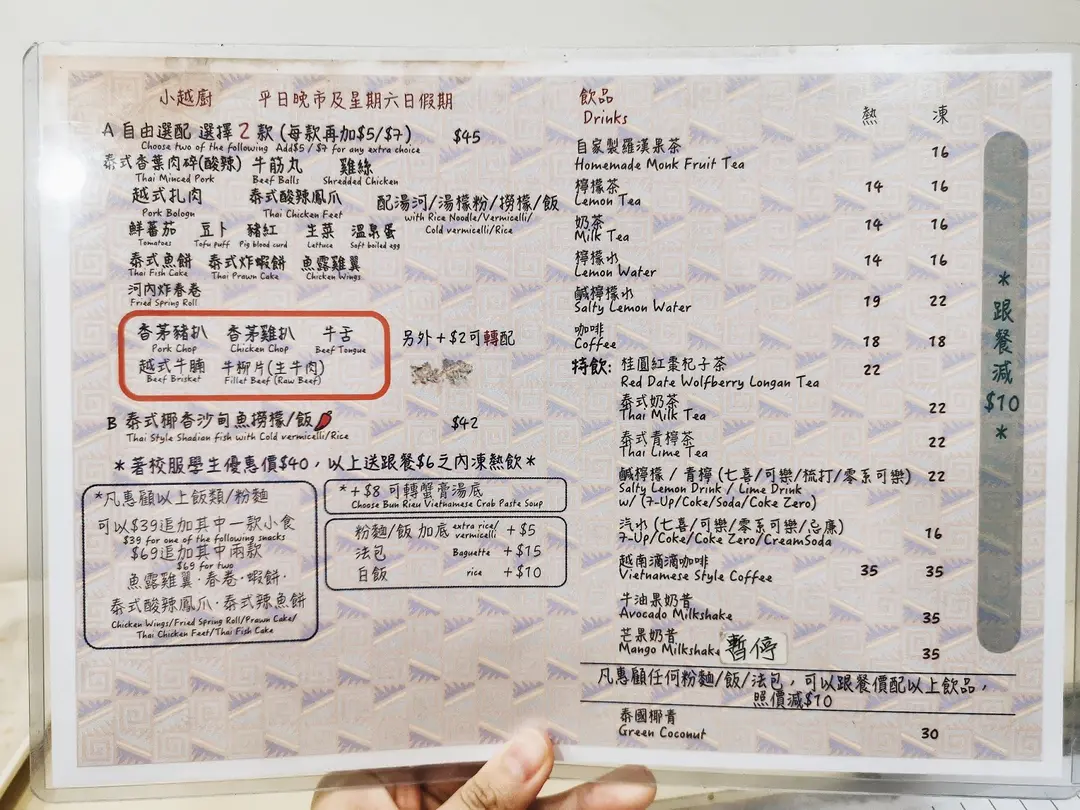 小越廚 平日晚市及星期六日假期
A 自由選配 選擇 2 款 (每款再加$5/$7) $45
Choose two of the following Add$5 / $7 for any extra choice
泰式香葉肉碎(酸辣) 牛筋丸 雞絲
Thai Minced Pork Beef Balls Shredded Chicken
越式扎肉 泰式酸辣鳳爪 配湯河/湯檬粉/撈檬/飯
Pork Bologn Thai Chicken Feet with Rice Noodle/Vermicelli/
Cold vermicelli/Rice
鮮蕃茄 豆卜 豬紅 生菜 溫泉蛋
Tomatoes Tofu puff Pig blood curd Lettuce Soft boiled egg
泰式魚餅 泰式炸蝦餅 魚露雞翼
Thai Fish Cake Thai Prawn Cake Chicken Wings
河內炸春卷
Fried Spring Roll
香茅豬扒 香茅雞扒 牛舌
Pork Chop Chicken Chop Beef Tongue
越式牛腩 牛柳片(生牛肉)
Beef Brisket Fillet Beef (Raw Beef)
另外+$2可轉配
B 泰式椰香沙甸魚撈檬/飯 $42
Thai Style Shadian fish with Cold vermicelli/Rice
*著校服學生優惠價$40，以上送跟餐$6之內凍熱飲*
*凡惠顧以上飯類/粉麵
可以$39追加其中一款小食
$39 for one of the following snacks
$69追加其中兩款
$69 for two
魚露雞翼·春卷·蝦餅·
泰式酸辣鳳爪·泰式辣魚餅
Chicken Wings/Fried Spring Roll/Prawn Cake/
Thai Chicken Feet/Thai Fish Cake
*+$8 可轉蟹膏湯底
Choose Bun Rieu Vietnamese Crab Paste Soup
粉麵/飯 加底 extra rice/ vermicelli +$5
法包 Baguette +$15
白飯 rice +$10
飲品
Drinks 熱 凍
自家製羅漢果茶
Homemade Monk Fruit Tea 16
檸檬茶
Lemon Tea 14 16
奶茶
Milk Tea 14 16
檸檬水
Lemon Water 14 16
鹹檸檬水
Salty Lemon Water 19 22
咖啡
Coffee 18 18
特飲: 桂圓紅棗杞子茶 22
Red Date Wolfberry Longan Tea
泰式奶茶
Thai Milk Tea 22
泰式青檸茶
Thai Lime Tea 22
鹹檸檬 / 青檸 (七喜/可樂/梳打/零系可樂) 22
Salty Lemon Drink / Lime Drink
w/ (7-Up/Coke/Soda/Coke Zero)
汽水 (七喜/可樂/零系可樂/忌廉) 16
7-Up/Coke/Coke Zero/CreamSoda
越南滴滴咖啡
Vietnamese Style Coffee 35 35
牛油果奶昔
Avocado Milkshake 35
芒果奶昔
Mango Milkshake 暫停 35
凡惠顧任何粉麵/飯/法包，可以跟餐價配以上飲品，
照價減$10
泰國椰青
Green Coconut 30
*跟餐減$10*